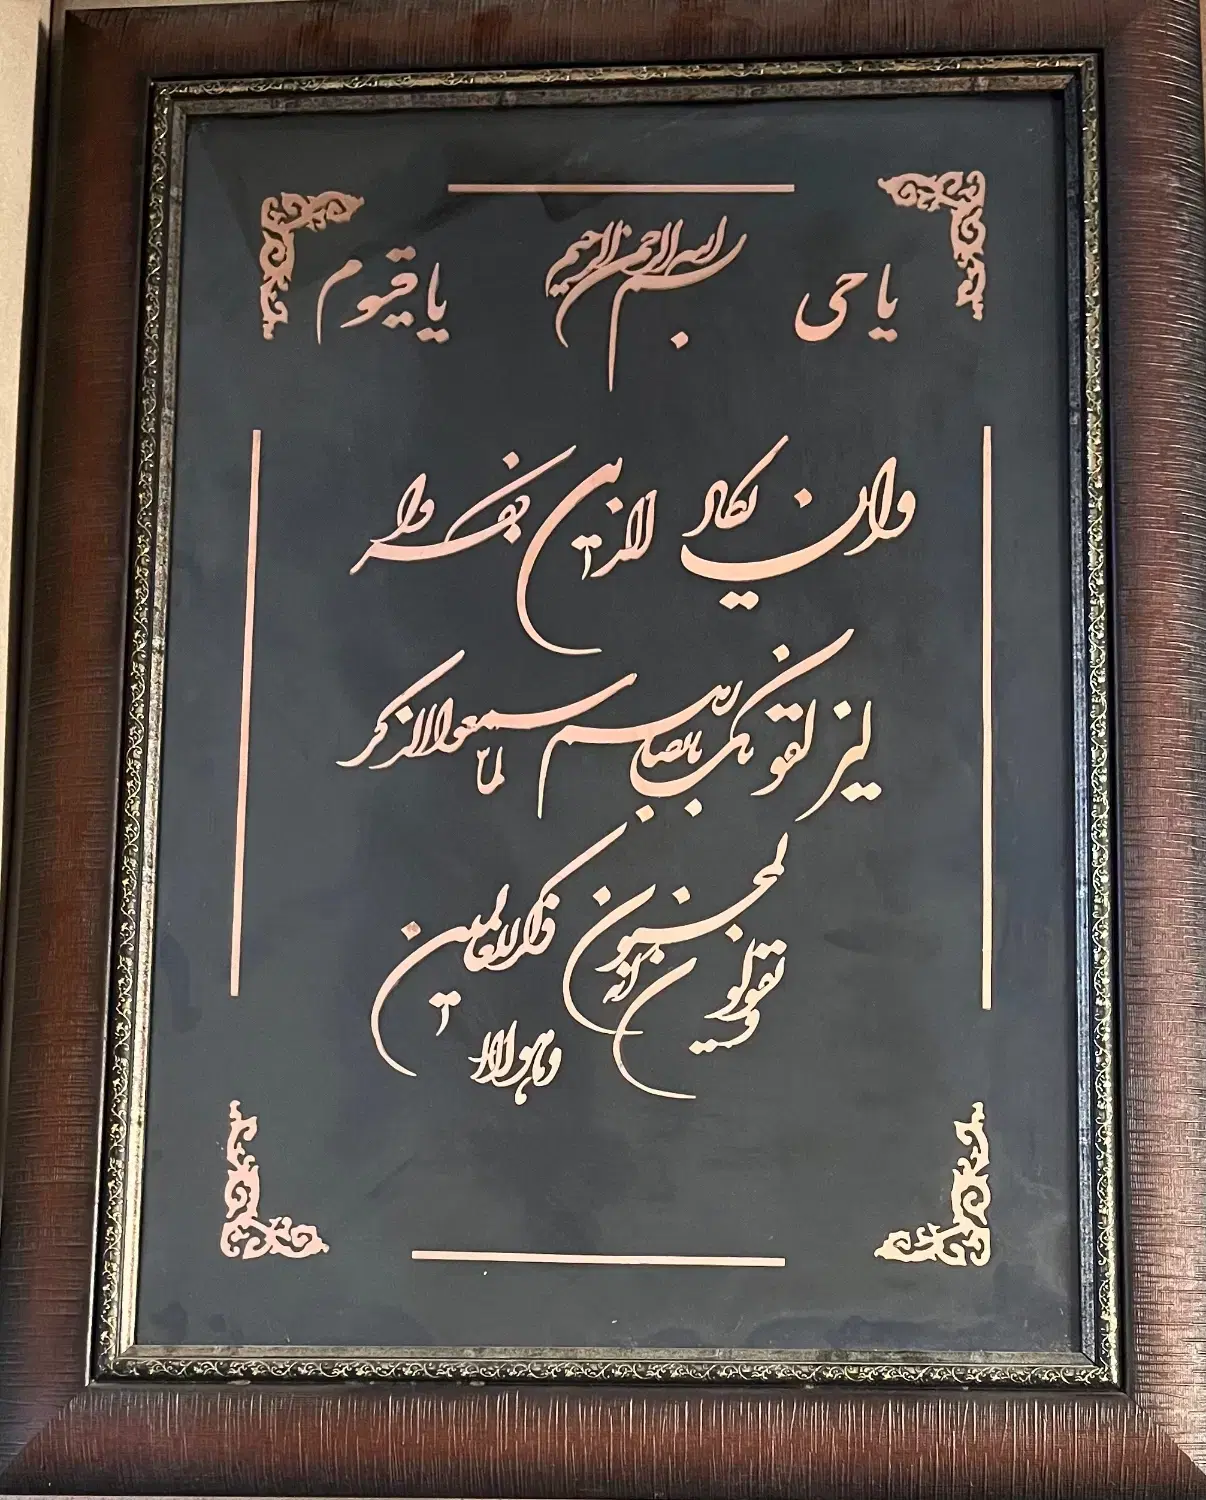 یا حی بسم الله الرحمن الرحیم یا قیوم
وان یکاد الذین کفروا
لیزلقونک بابصارهم لما سمعوا الذکر
و یقولون انه لمجنون و ما هو الا ذکر للعالمین